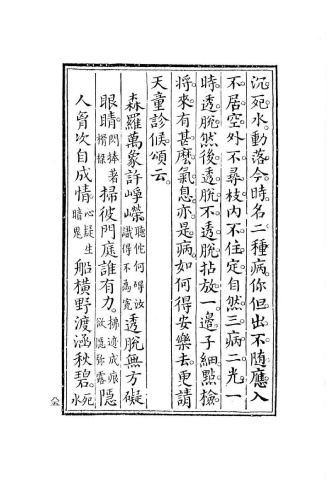 沉死水。動落今時。名二種病。你但出不随應。入
不居空。外不尋枝。内不住定。自然三病二光。一
時透脫。然後透脫不透脫。拈放一邉。子細點檢
将來。有甚麽氣息。亦是病。如何得安樂去。更請
天童診候。頌云。
森羅萬象許崢嶸。聽佗何礙汝識得不為寃透脫無方礙
眼睛。閃捧著榾榾掃彼門庭誰有力。掃迹成痕欲隠弥露隠
人胷次自成情。心疑生暗鬼船横野渡涵秋碧。死水